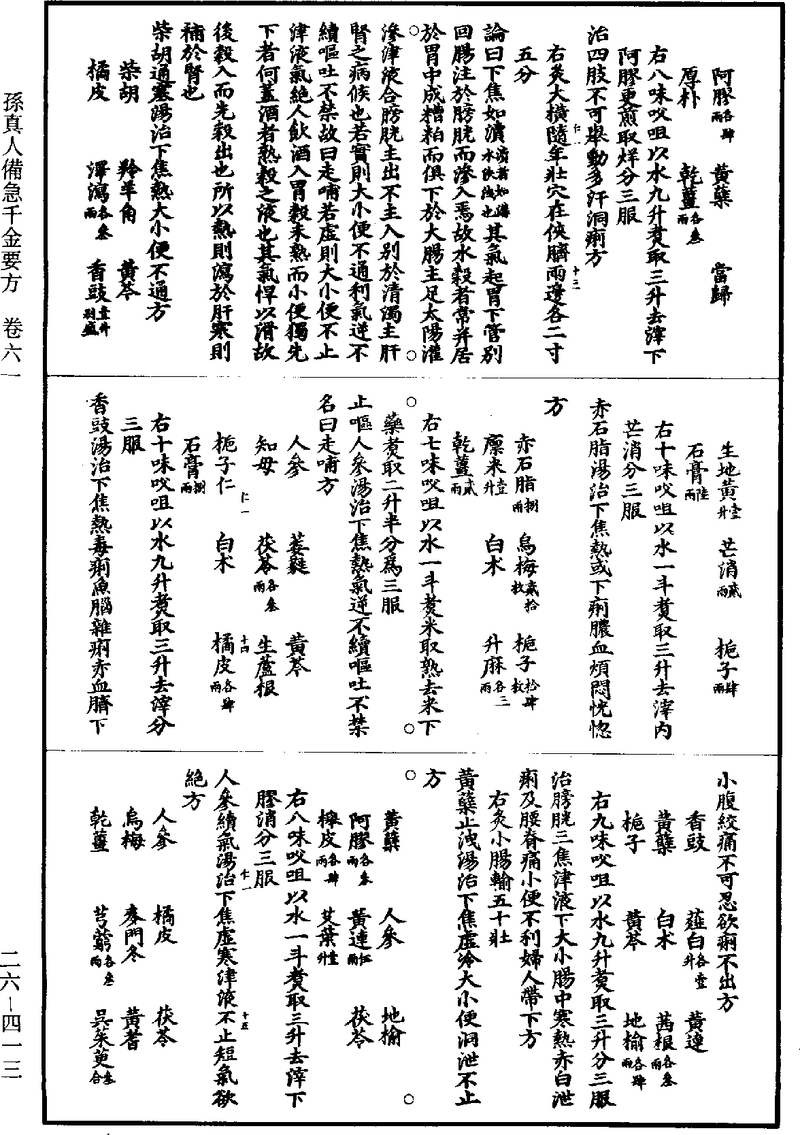 阿膠各肆兩　黃蘗　當歸
厚朴　乾薑各叁兩
右八味㕮咀以水九升煑取三升去滓下
阿膠更煎取烊分三服
治四肢不可舉動多汗洞痢方
右灸大橫隨年壯穴在俠臍兩邊各二寸
五分
論曰下焦如瀆其氣起胃下管別
回腸注於膀胱而滲入焉故水穀者常并居
於胃中成糟粕而俱下於大腸主足太陽灌
滲津液合膀胱主出不主入別於清濁主肝
腎之病候也若實則大小便不通利氣逆不
續嘔吐不禁故曰走哺若虛則大小便不止
津液氣絕人飲酒入胃穀未熟而小便獨先
下者何蓋酒者熟穀之液也其氣悍以滑故
後穀入而先穀出也所以熱則瀉於肝寒則
補於腎也
柴胡通塞湯治下焦熱大小便不通方
柴胡　羚羊角　黃芩
橘皮　澤瀉各叁兩　香豉壹升別盛
生地黃壹升　芒消貳兩　梔子肆兩
石膏陸兩
右十味㕮咀以水一斗煑取三升去滓內
芒消分三服
赤石脂湯治下焦熱或下痢膿血煩悶恍惚
方
赤石脂捌兩　烏梅貳拾枚　梔子拾肆枚
廩米壹升　白朮　升麻各三兩
乾薑貳兩
右七味㕮咀以水一斗煑米取熟去米下
藥煑取二升半分爲三服
止嘔人參湯治下焦熱氣逆不續嘔吐不禁
名曰走哺方
人參　萎蕤　黃芩
知母　茯苓各叁兩　生蘆根
梔子仁　白朮　橘皮各肆兩
石膏捌兩
右十味㕮咀以水九升煑取三升去滓分
三服
香豉湯治下焦熱毒痢魚腦雜痢赤血臍下
小腹絞痛不可忍欲痢不出方
香豉　薤白各壹升　黃連
黃蘗　白朮　茜根各叁兩
梔子　黃芩　地榆各肆兩
右九味㕮咀以水九升煑取三升分三服
治膀胱三焦津液下大小腸中寒熱赤白泄
痢及腰脊痛小便不利婦人帶下方
右灸小腸輸五十壯
黃蘗止洩湯治下焦虛冷大小便洞泄不止
方
黃蘗　人參　地榆
阿膠各叁兩　黃連伍兩　茯苓
樗皮各肆兩　艾葉壹升
右八味㕮咀以水一斗煑取三升去滓下
膠消分三服
人參續氣湯治下焦虛寒津液不止短氣欲
絕方
人參　橘皮　茯苓
烏梅　麥門冬　黃耆
乾薑　芎藭各叁兩　吳茱萸叁合
孫真人備急千金要方　卷六一
二六—四一三